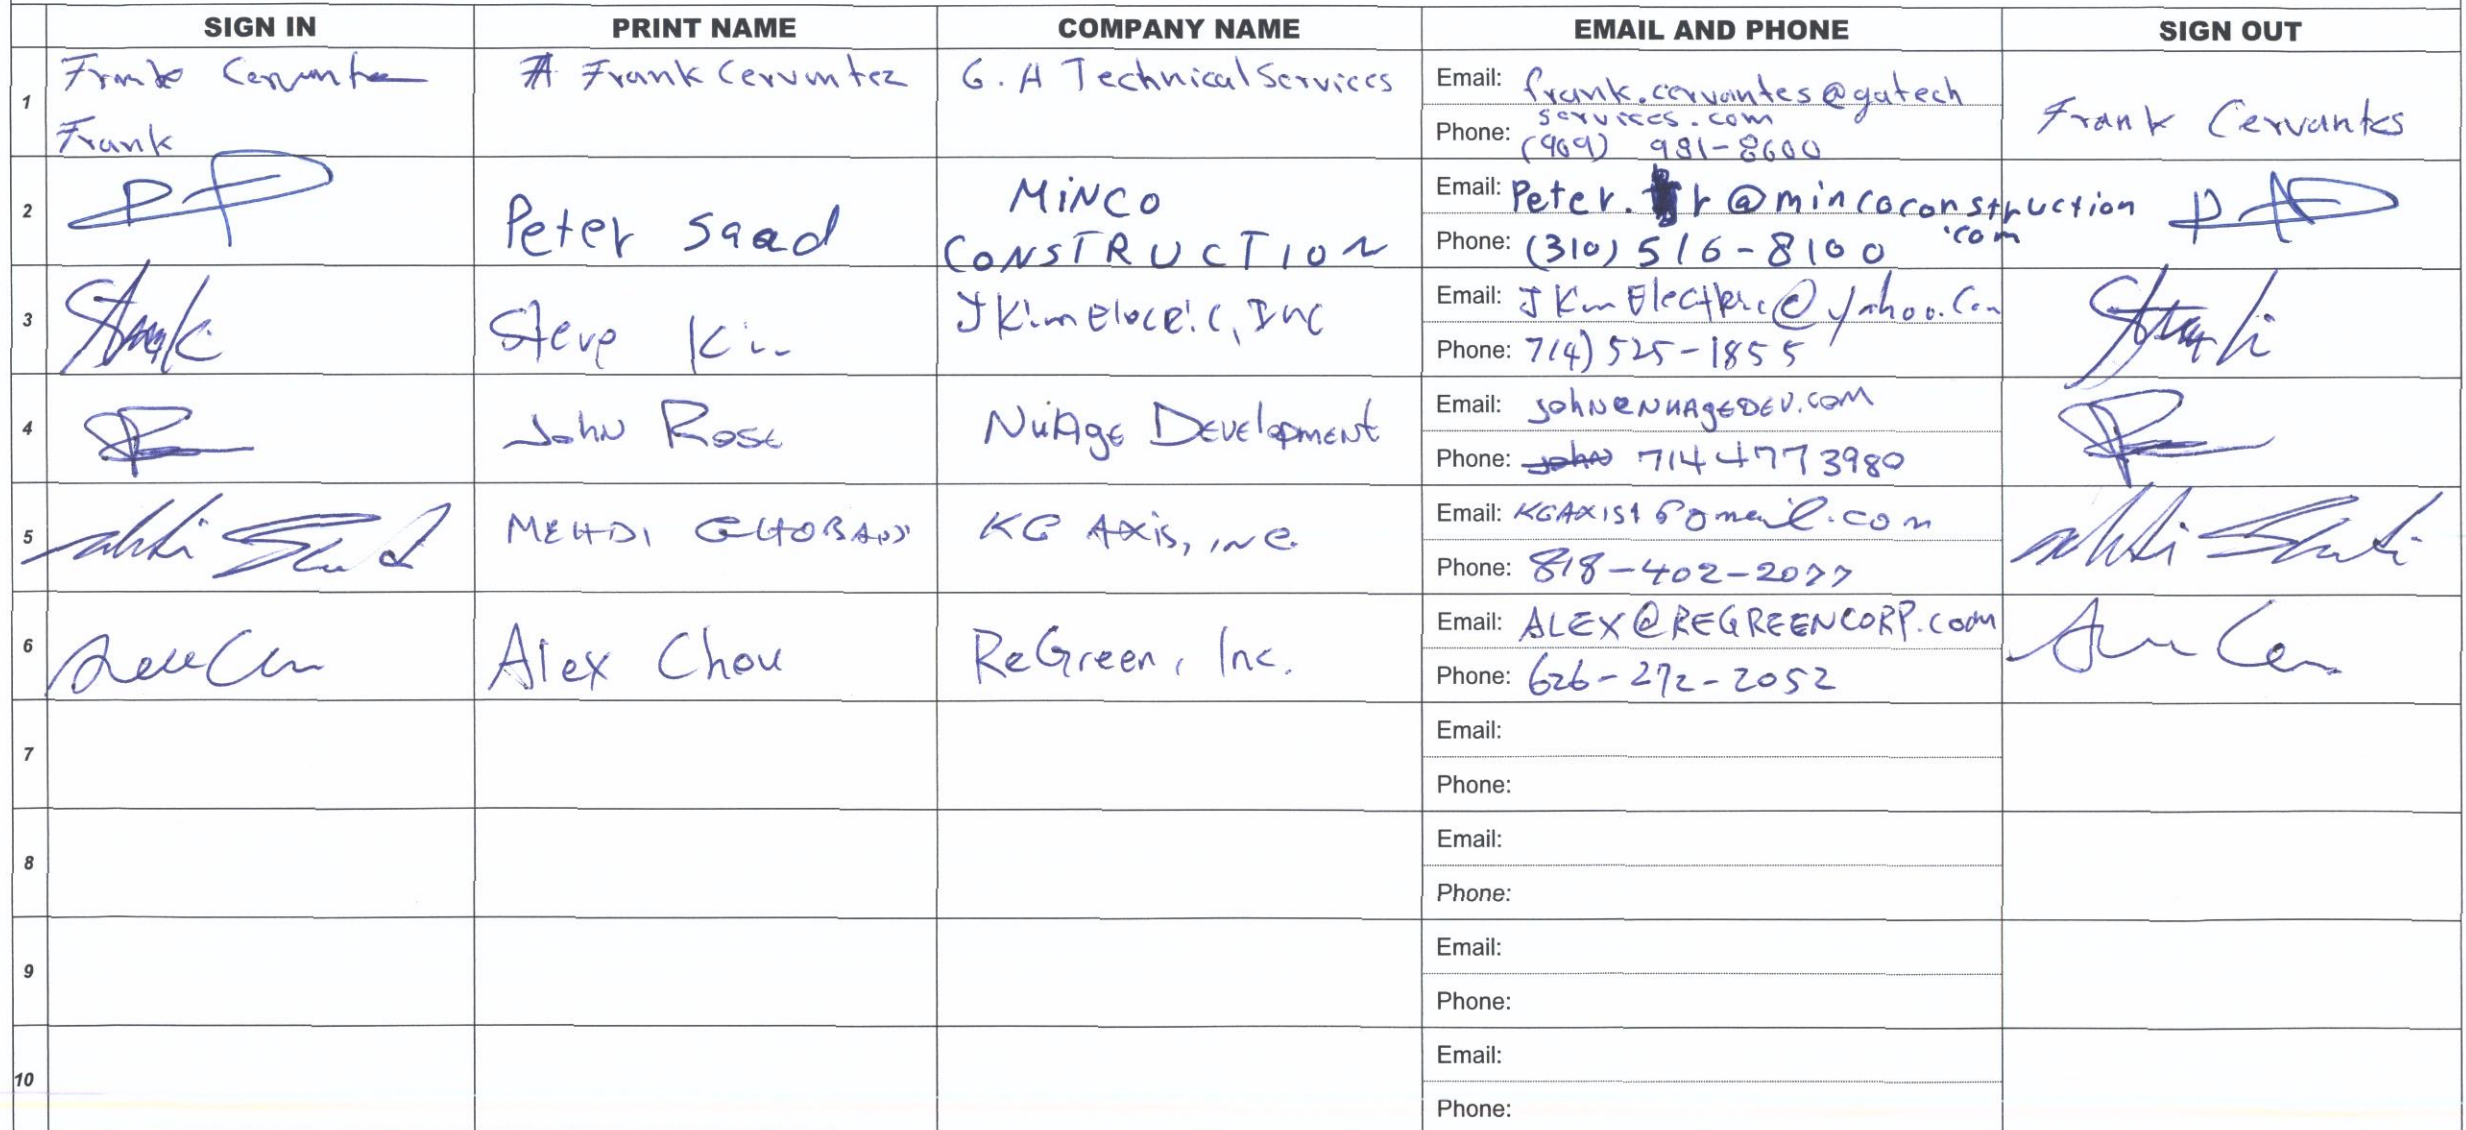 SIGN IN PRINT NAME COMPANY NAME EMAIL AND PHONE SIGN OUT
1 Frank Cervantes A Frank Cervantez G. A Technical Services Email: frank.cervantes@gatech Frank Cervantes
services.com
Frank Phone: (909) 981-8600
2 Peter Saad MINCO Email: Peter. r@mincoconstruction
.com
CONSTRUCTION Phone: (310) 516-8100
3 Steve Kim JKim Eloceic, Inc Email: JKimElectric@yahoo.Com
Phone: 714) 525-1855
4 John Rose NuAge Development Email: john@NUAGEDEV.COM
Phone: john 714 477 3980
5 MEHDI KG Axis, inc. Email: KGAXIS1@gmail.com
Phone: 818-402-2077
6 Alex Chou ReGreen, Inc. Email: ALEX@REGREENCORP.com
Phone: 626-272-2052
7 Email:
Phone:
8 Email:
Phone:
9 Email:
Phone:
10 Email:
Phone: